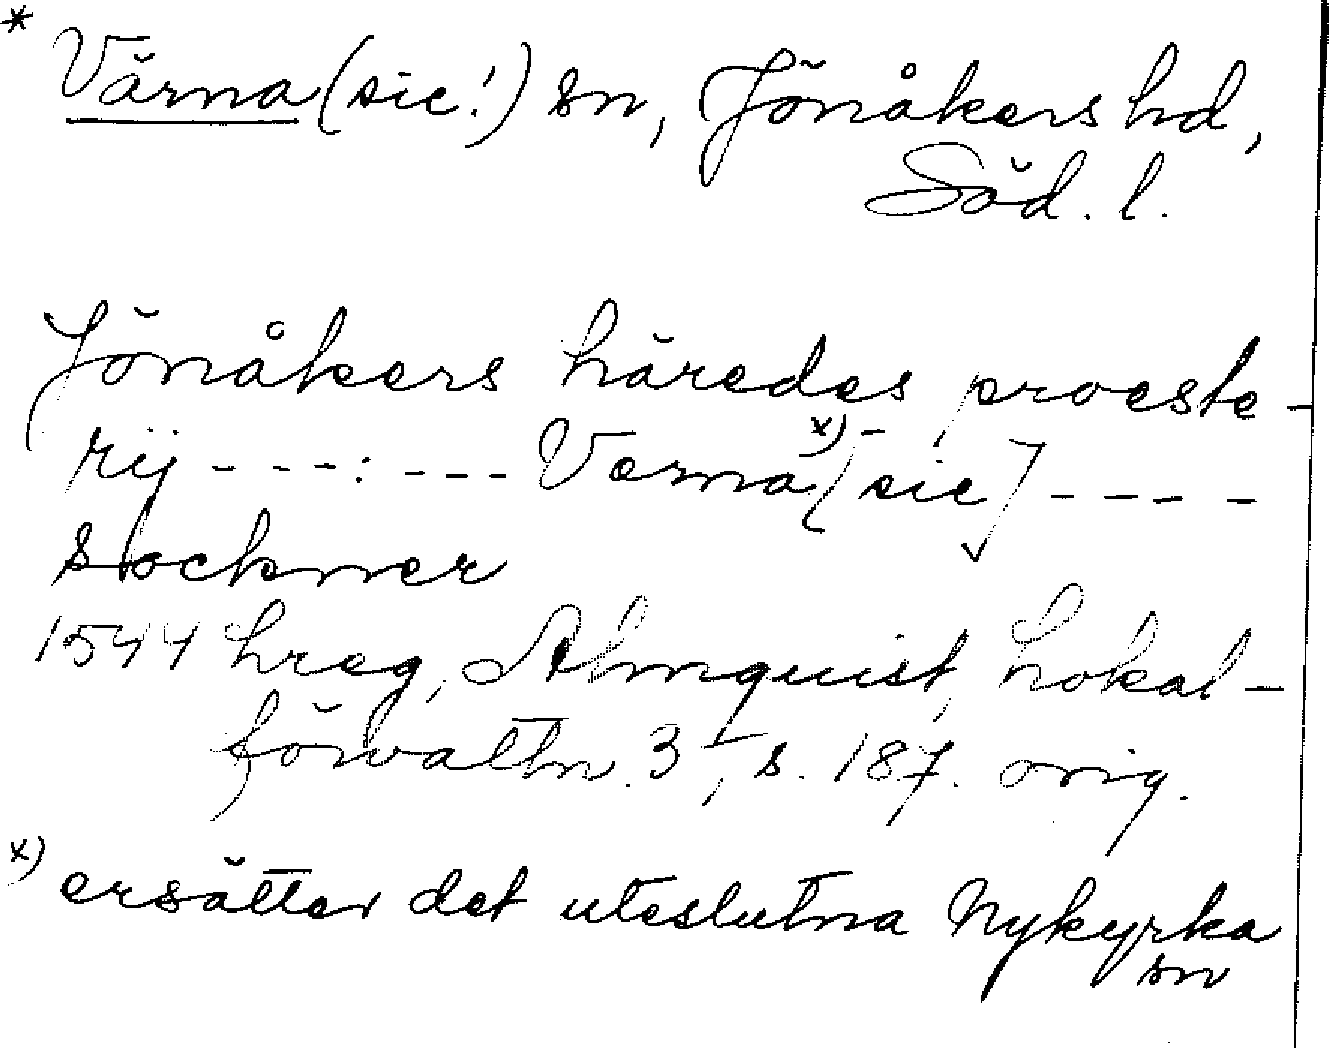 * Värna (sic!) sn, Jönåkers hd,
Söd. l.
Jönåkers häredes proeste-
rij - - - : - - - Verna x) [sic] - - - -
sockner
1544 hreg, Almquist, Lokal-
förvaltn. 3, s. 187. orig.
x) ersätter det uteslutna Nykyrka
sn